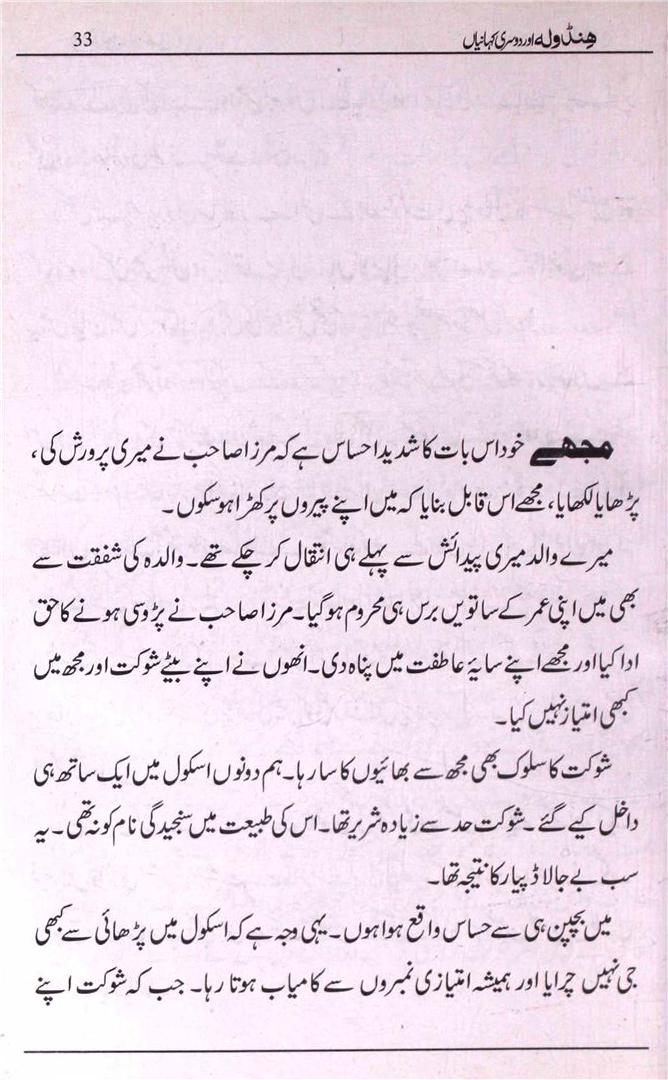 ہنڈولہ اور دوسری کہانیاں 33
مجھے خود اس بات کا شدید احساس ہے کہ مرزا صاحب نے میری پرورش کی،
پڑھایا لکھایا، مجھے اس قابل بنایا کہ میں اپنے پیروں پر کھڑا ہو سکوں۔
میرے والد میری پیدائش سے پہلے ہی انتقال کر چکے تھے۔ والدہ کی شفقت سے
بھی میں اپنی عمر کے ساتویں برس ہی محروم ہو گیا۔ مرزا صاحب نے پڑوسی ہونے کا حق
ادا کیا اور مجھے اپنے سایۂ عاطفت میں پناہ دی۔ انھوں نے اپنے بیٹے شوکت اور مجھ میں
کبھی امتیاز نہیں کیا۔
شوکت کا سلوک بھی مجھ سے بھائیوں کا سا رہا۔ ہم دونوں اسکول میں ایک ساتھ ہی
داخل کیے گئے۔ شوکت حد سے زیادہ شریر تھا۔ اس کی طبیعت میں سنجیدگی نام کو نہ تھی۔ یہ
سب بے جا لاڈ پیار کا نتیجہ تھا۔
میں بچپن ہی سے حساس واقع ہوا ہوں۔ یہی وجہ ہے کہ اسکول میں پڑھائی سے کبھی
جی نہیں چرایا اور ہمیشہ امتیازی نمبروں سے کامیاب ہوتا رہا۔ جب کہ شوکت اپنے